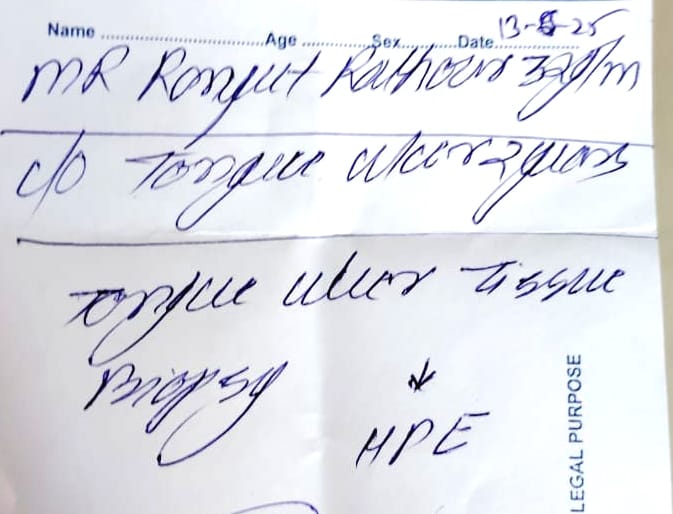 Name ............ Age ............ Sex ............ Date 13-5-25
MR Ranjeet Rathour 32y/m
c/o Tongue ulcer 2 years
Tongue ulcer Tissue
Biopsy ↓
HPE
LEGAL PURPOSE